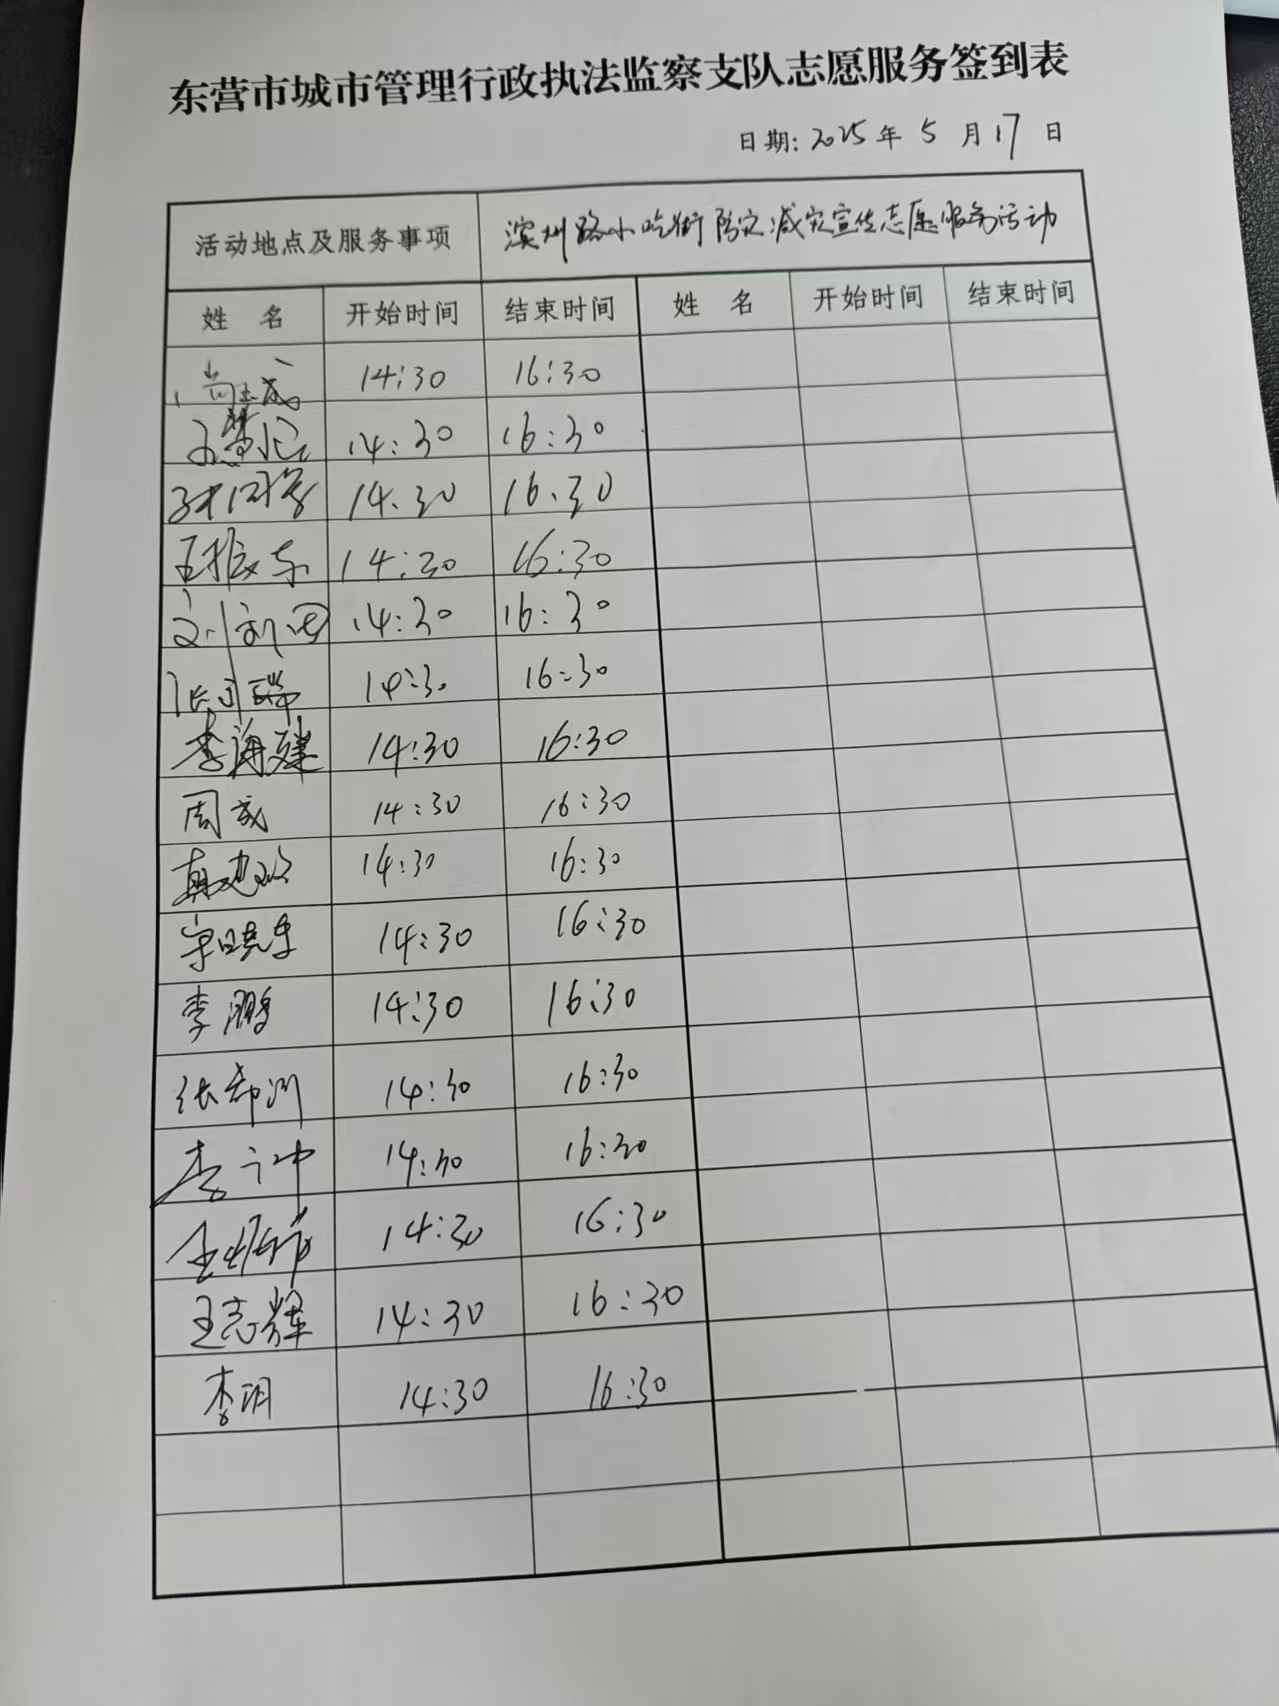 东营市城市管理行政执法监察支队志愿服务签到表
日期: 2025 年 5 月 17 日
活动地点及服务事项 滨州路小吃街防灾减灾宣传志愿服务活动
姓 名 开始时间 结束时间 姓 名 开始时间 结束时间
14:30 16:30
14:30 16:30
14:30 16:30
王振东 14:30 16:30
刘新国 14:30 16:30
14:30 16:30
李海建 14:30 16:30
周成 14:30 16:30
14:30 16:30
宋晓东 14:30 16:30
李鹏 14:30 16:30
14:30 16:30
14:30 16:30
14:30 16:30
王志辉 14:30 16:30
李明 14:30 16:30